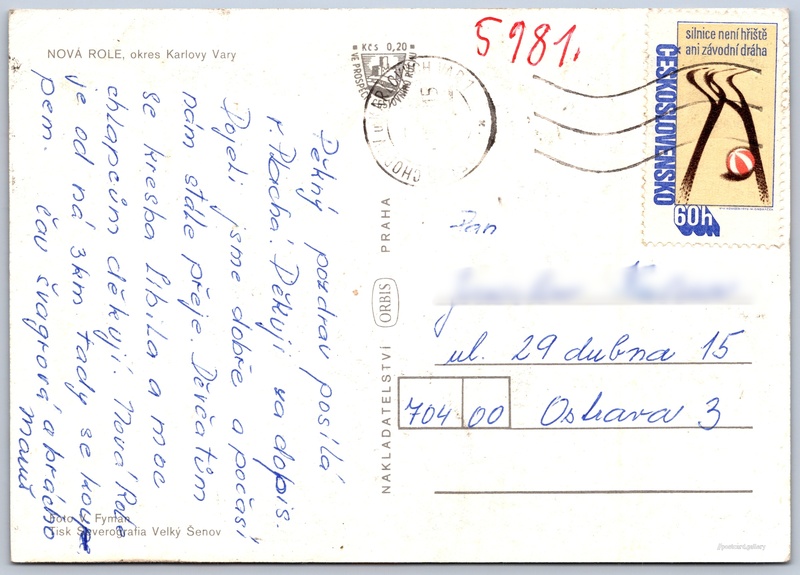 NOVÁ ROLE, okres Karlovy Vary
Kčs 0,20
VE PROSPĚCH
5 1981.
silnice není hřiště
ani závodní dráha
ČESKOSLOVENSKO
60h
Pěkný pozdrav posílá
r. Plachá. Děkuji za dopis.
Dojeli jsme dobře a počasí
nám stále přeje. Děvčatům
se kresba líbila a moc
chlapcům děkují. Nová Role
je od ná 3 km. tady se koupe
pem. čau švagrová a brácho
Pan
ul. 29 dubna 15
704 00 Ostrava 3
NAKLADATELSTVÍ ORBIS PRAHA
Foto V. Fyman
Tisk Severografia Velký Šenov
//postcard.gallery